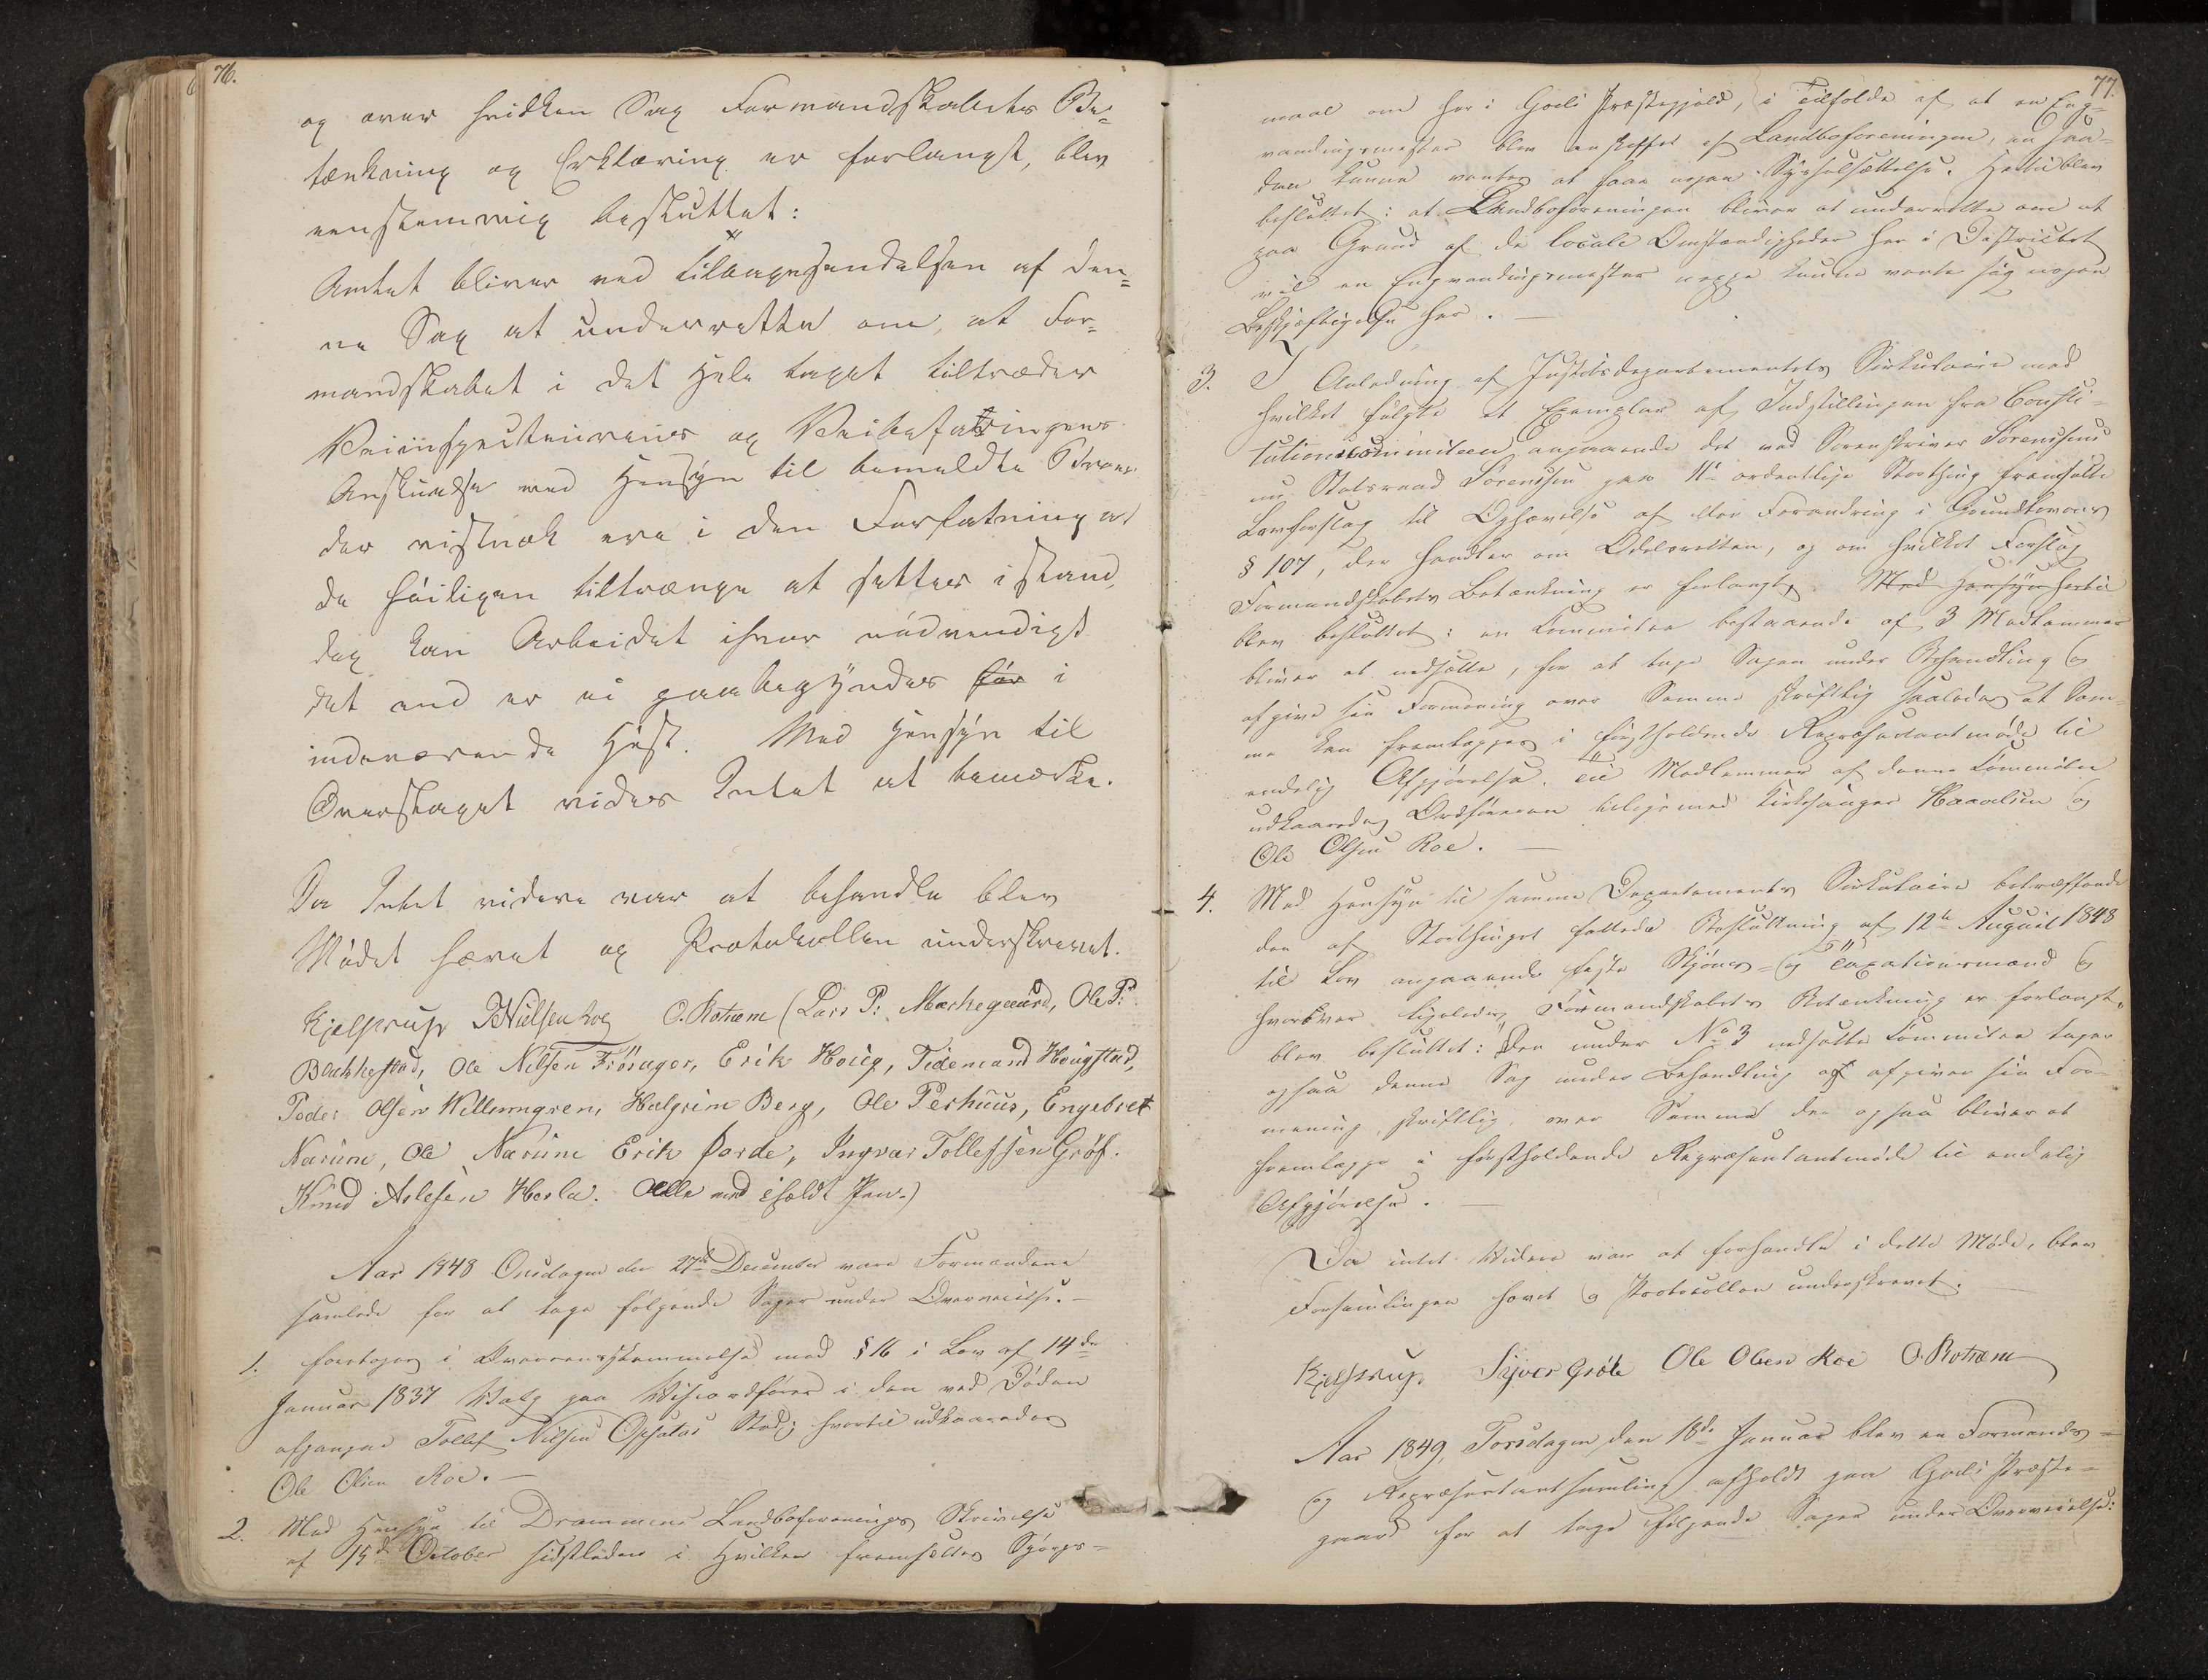 76.
og over hvilken Sag Formandskabets Be=
tænkning og Erklæring er forlangt, blev
eenstemmig besluttet:
Amtet bliver ved Tilbagesendelsen af den=
ne Sag at underrette om, at For=
mandskabet i det Hele taget tiltræder
Veiinspecteurens og Veibefaringens
Anskuelse med Hensyn til bemeldte Broer
der vistnok ere i den Forfatning at
de høiligen tiltrænge at settes istand,
dog kan Arbeidet isvær nødvendigt
det end er ei paabegyndes før i
indeværende Høst. Med Hensyn til
Overslaget vides Intet at bemærke.
Da Intet videre var at behandle blev
Mødet hævet og Protokollen underskrevet.
Kjelstrup TNielsen Roe O. Rotnem (Lars P: Markegaard, Ole P:
Blakkestad, Ole Nilsen Frøsager, Erik Hoieg, Tidemand Hougstad,
Peder Olsen Willumgren, Halgrim Berg, Ole Perhuus, Engebret
Narum, Ole Narum Erik Garde, Ingvar Tollefsen Grøf.
Knud Aslesen Hesla. Alle med iholdt Pen.)
Aar 1848 Onsdagen den 27de December vare Formændene
samlede for at tage følgende Sager under Overveielse. –
1. foretoges i Overeensstemmelse med § 16 i Lov af 14de
Januar 1837 Valg paa Viceordfører i den ved Døden
afgangne Tollef Nilsen Opsatas Sted; hvortil udkaaredes
Ole Olsen Roe. –
2. Med Hensyn til Drammens Landboforenings Skrivelse
af 15de October sidstleden i Hvilken fremsættes Spørgs=
77.
maal om her i Gols Præstegjeld, i Tilfælde af at en Eng=
vandingsmester blev anskaffet af Landboforeningen, en saa=
dan kunne ventes at faae nogen Sysselsættelse. Hertil blev
besluttet: at Landboforeningen bliver at underrette om at
paa Grund af de locale Omstændigheder her i Districtet
vil en Engvandingsmester neppe kunne vente sig nogen
Beskjæftigelse her. –
3. I Anledning af Justitsdepartementets Cirkulaire med
hvilket fulgte et Exemplar af Indstillingen fra Consti=
tutionscommiteen angaaende det ved Sorenskriver Sørenssens
nu Statsraad Sørenssen paa 11te ordentlige Storthing fremsatte
Lovforslag til Ophævelse af eller Forandring i Grundlovens
§ 107, der handler om Odelsretten, og om hvilket Forslag
Formandskabets Betænkning er forlangt, Med Hensyn hertil
blev besluttet: en Committee bestaaende af 3 Medlemmer
bliver at nedsætte, for at tage Sagen under Behandling og
afgive sin Formening over Samme skriftlig saaledes at Sam=
me kan fremlægges i førstholdende Repræsentantmøde til
endelig Afgjørelse. Til Medlemmer af denne Committee
udkaaredes Ordføreren tilligemed Kirkesanger Haavelsen og
Ole Olsen Roe. –
4. Med Hensyn til samme Departements Cirkulaire betræffende
den af Storthinget fattede Beslutning af 12te August 1848
til Lov angaaende faste Skjøns= og Taxationsmænd og
hvorover ligeledes Formandskabets Betænkning er forlangt,
blev besluttet: Den under No 3 nedsatte Committee tager
ogsaa denne Sag under Behandling og afgiver sin For=
mening skriftlig over Samme der ogsaa bliver at
fremlægge i førstholdende Repræsentantmøde til endelig
Afgjørelse. –
Da intet Videre var at forhandle i dette Møde, blev
Forsamlingen hævet og Protocollen underskrevet.
Kjelstrup. Syver Grøte Ole Olsen Roe O. Rotnem
Aar 1849, Torsdagen den 18de Januar blev en Formands=
og Repræsentantsamling afholdt paa Gols Præste=
gaard for at tage følgende Sager under Overveielse: